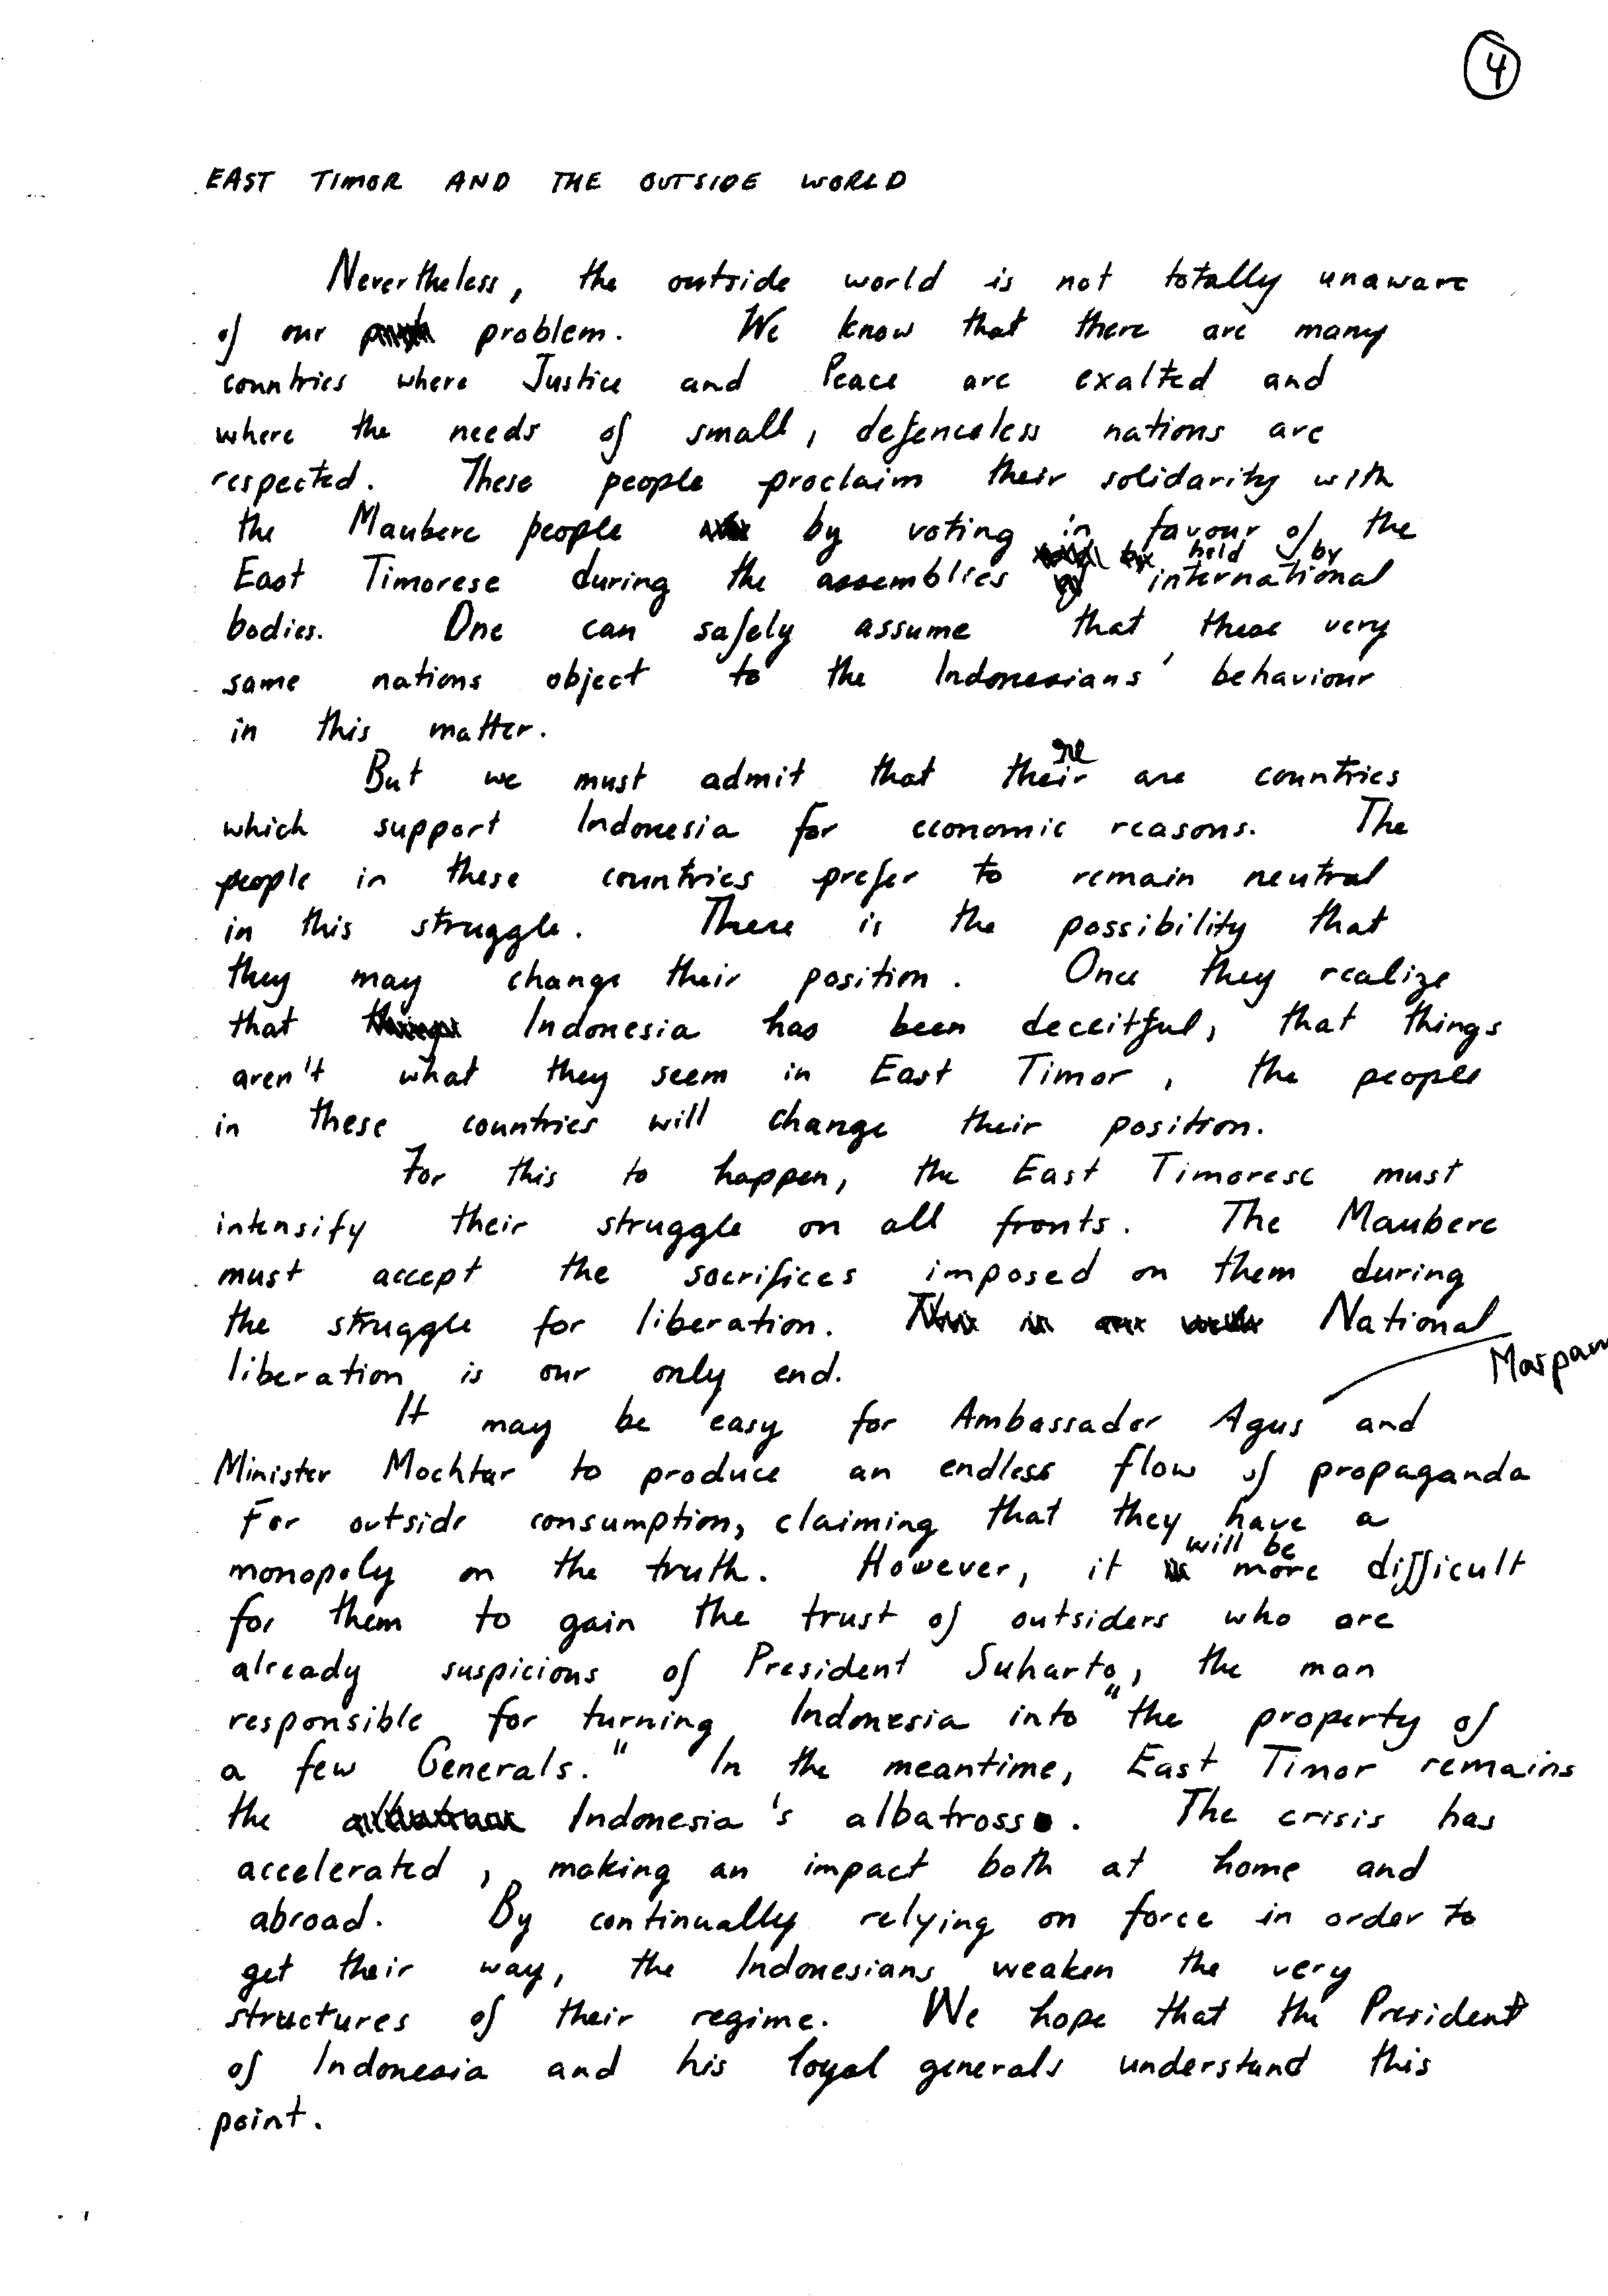 4
EAST TIMOR AND THE OUTSIDE WORLD
Nevertheless, the outside world is not totally unaware
of our problem. We know that there are many
countries where Justice and Peace are exalted and
where the needs of small, defenceless nations are
respected. These people proclaim their solidarity with
the Maubere people by voting in favour of the
held by
East Timorese during the assemblies international
bodies. One can safely assume that these very
same nations object to the Indonesians' behaviour
in this matter.
But we must admit that there are countries
which support Indonesia for economic reasons. The
people in these countries prefer to remain neutral
in this struggle. There is the possibility that
they may change their position. Once they realize
that Indonesia has been deceitful, that things
aren't what they seem in East Timor, the people
in these countries will change their position.
For this to happen, the East Timorese must
intensify their struggle on all fronts. The Maubere
must accept the sacrifices imposed on them during
the struggle for liberation. National
liberation is our only end.
It may be easy for Ambassador Agus and
Minister Mochtar to produce an endless flow of propaganda
For outside consumption, claiming that they have a
will be
monopoly on the truth. However, it more difficult
for them to gain the trust of outsiders who are
already suspicious of President Suharto, the man
responsible for turning Indonesia into "the property of
a few Generals." In the meantime, East Timor remains
the Indonesia's albatross. The crisis has
accelerated, making an impact both at home and
abroad. By continually relying on force in order to
get their way, the Indonesians weaken the very
structures of their regime. We hope that the President
of Indonesia and his loyal generals understand this
point.